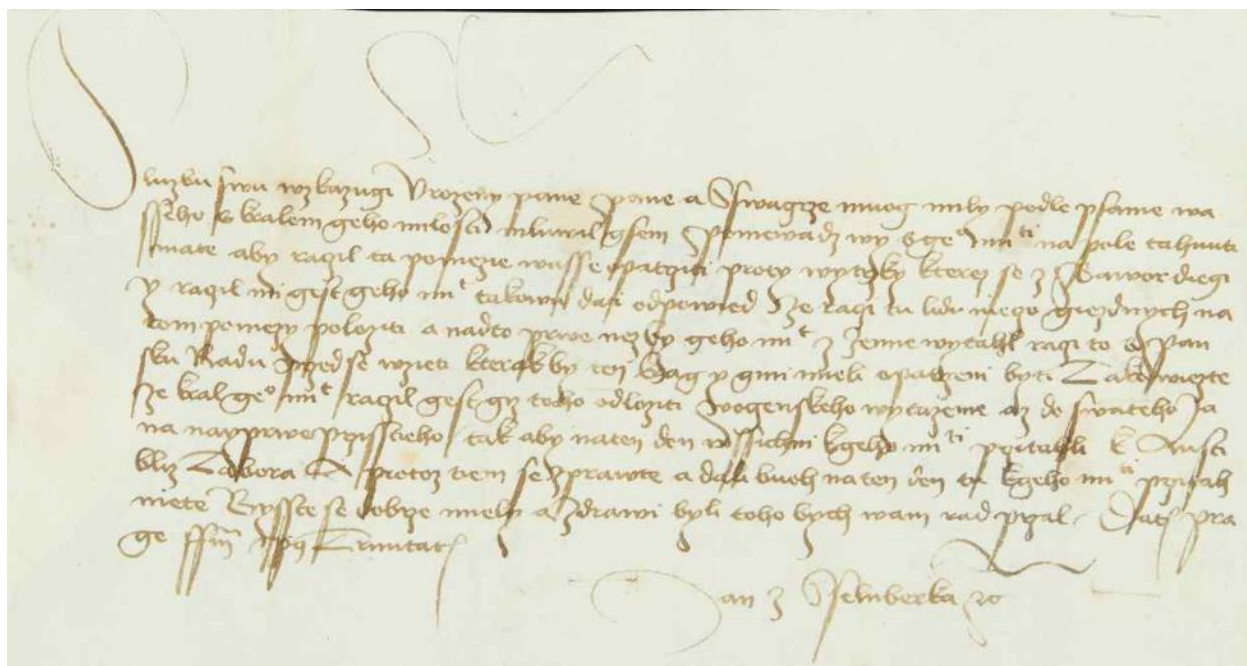 Sluzbu swu wzkazugi Vrozeny pane pane a Sswagrze muog mily podle psanie wa
sseho s kralem geho milosti mluwil gsem Poniewadz wy s geº mᵗⁱ na pole tahnuti
mate aby raczil ta pomezie wasse opatrziti proty wytrzky kterez se z Bawor diegi
y raczil mi gest geho mᵗ takowu dati odpowied Ze raczi tu lidu nieczo gezdnych na
tom pomezy poloziti a nadto prwe nez by geho mᵗ z zemie wytahl raczi to s Pan
sku Radu przed se wzieti kterak by ten krag y gini mieli opatrzeni byti Take wiezte
ze kral geº mᵗ raczil gest gyz toho odloziti wogenskeho wytazenie az do swateho Ja
na nayprwe przissticho tak aby na ten den wssichni k geho mᵗⁱ przitahli k Austi
bliz Tabora A protoz tiem se zprawte a dali buoh na ten den tu k geho mᵗⁱ przitah
niete Bysste se dobrze mieli a zdrawi byli toho bych wam rad przal Datᷤ pra
ge
Jan z